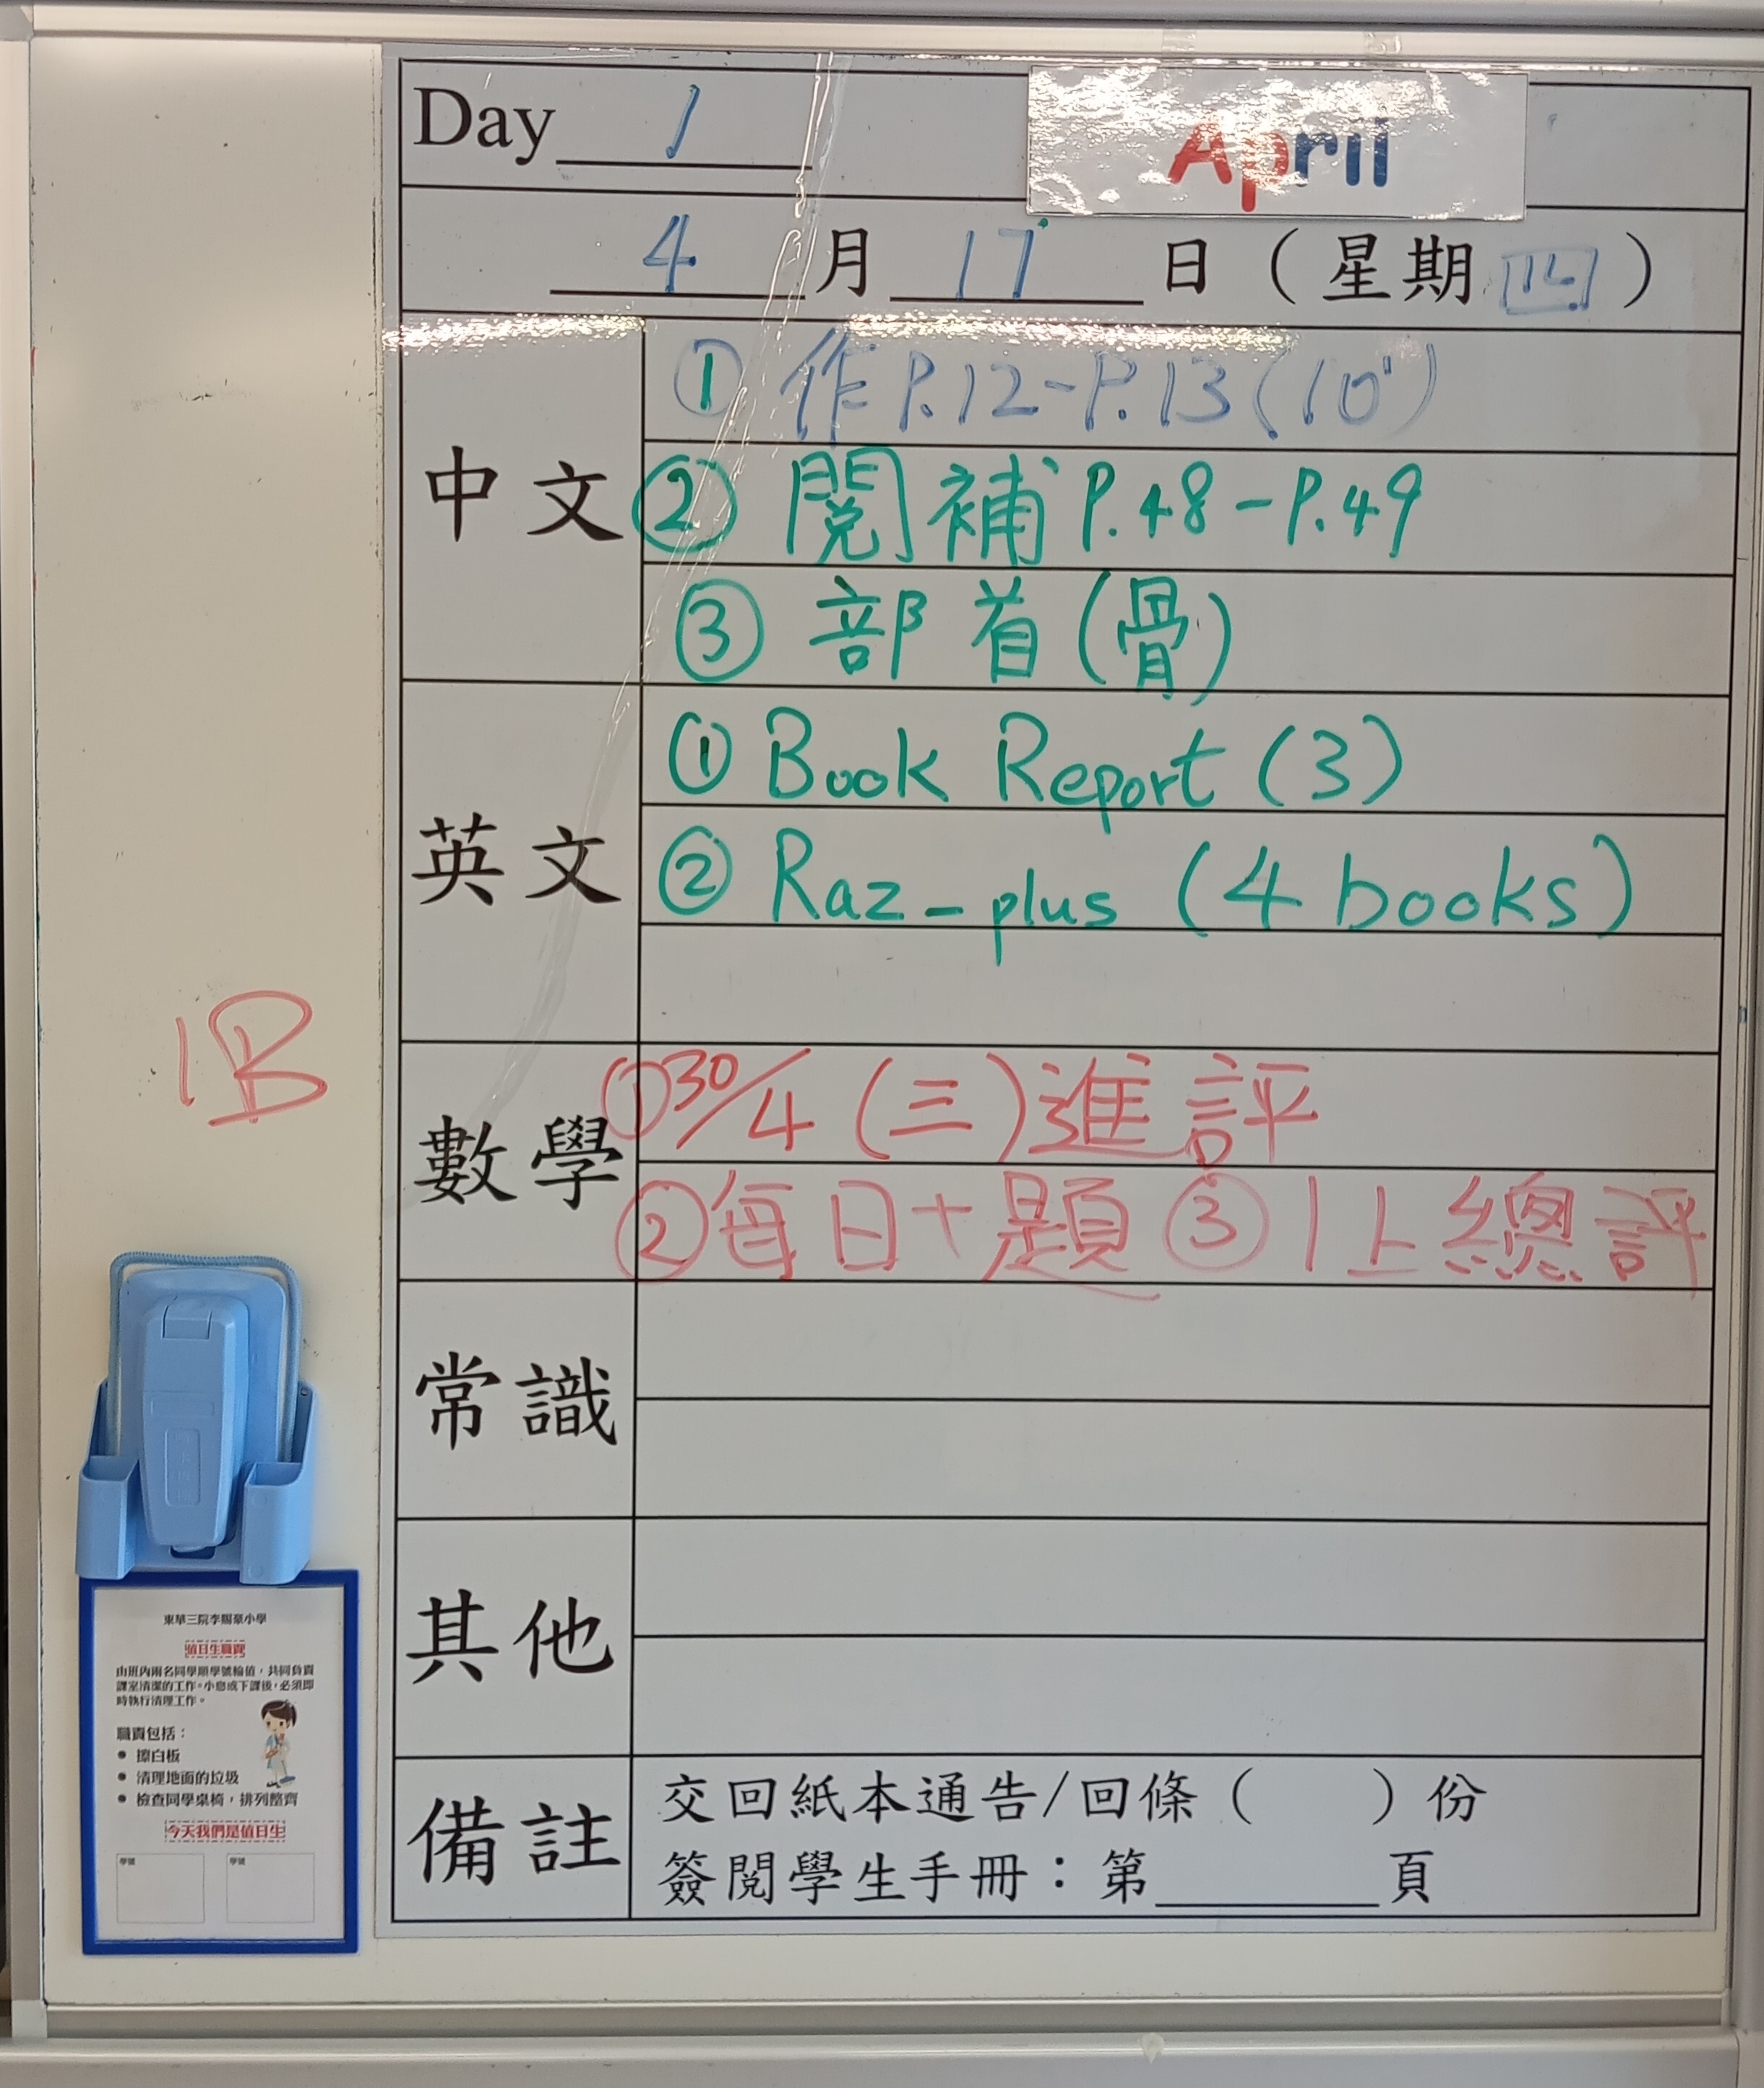 Day 1
April
4 月 17 日 (星期四)
中文
① 作 P.12-P.13 (10')
② 閱補 P.48-P.49
③ 部首 (骨)
英文
① Book Report (3)
② Raz-plus (4 books)
1B
數學
① 30/4 (三) 進評
② 每日十題 ③ 1上總評
常識
其他
備註
交回紙本通告/回條 ( ) 份
簽閱學生手冊:第______頁
東華三院李賜豪小學
值日生職責
由班內兩名同學順學號輪值,共同負責
課室清潔的工作。小息或下課後,必須即
時執行清理工作。
職責包括:
• 擦白板
• 清理地面的垃圾
• 檢查同學桌椅,排列整齊
今天我們是值日生
學號 學號